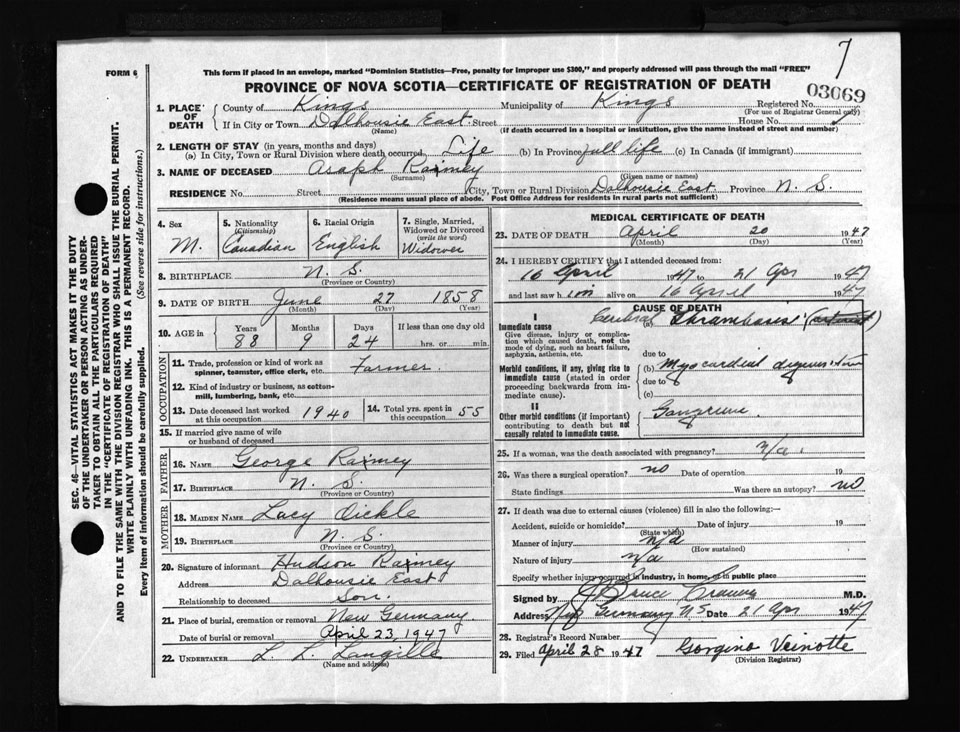 7
FORM 6
This form if placed in an envelope, marked "Dominion Statistics—Free, penalty for improper use $300," and properly addressed will pass through the mail "FREE"
PROVINCE OF NOVA SCOTIA—CERTIFICATE OF REGISTRATION OF DEATH
03069
1. PLACE OF DEATH
County of Kings Municipality of Kings Registered No.
(For use of Registrar General only)
If in City or Town Dalhousie East Street House No.
(Name) (if death occurred in a hospital or institution, give the name instead of street and number)
2. LENGTH OF STAY (in years, months and days)
(a) In City, Town or Rural Division where death occurred Life (b) In Province full life (c) In Canada (if immigrant)
3. NAME OF DECEASED Asaph
(Surname) (Given name or names)
RESIDENCE No. Street City, Town or Rural Division Dalhousie East Province N. S.
(Residence means usual place of abode. Post Office Address for residents in rural parts not sufficient)
SEC. 46—VITAL STATISTICS ACT MAKES IT THE DUTY
OF THE UNDERTAKER OR PERSON ACTING AS UNDERTAKER TO OBTAIN ALL THE PARTICULARS REQUIRED
IN THE "CERTIFICATE OF REGISTRATION OF DEATH"
AND TO FILE THE SAME WITH THE DIVISION REGISTRAR WHO SHALL ISSUE THE BURIAL PERMIT.
WRITE PLAINLY WITH UNFADING INK. THIS IS A PERMANENT RECORD.
Every item of information should be carefully supplied. (See reverse side for instructions.)
4. Sex
M.
5. Nationality
(Citizenship)
Canadian
6. Racial Origin
English
7. Single, Married,
Widowed or Divorced
(write the word)
Widower
8. BIRTHPLACE N. S.
(Province or Country)
9. DATE OF BIRTH June 27 1858
(Month) (Day) (Year)
10. AGE in
Years Months Days If less than one day old
88 9 24 hrs. or min.
OCCUPATION
11. Trade, profession or kind of work as
spinner, teamster, office clerk, etc. Farmer.
12. Kind of industry or business, as cotton-
mill, lumbering, bank, etc.
13. Date deceased last worked
at this occupation 1940
14. Total yrs. spent in
this occupation 55
15. If married give name of wife
or husband of deceased
FATHER
16. NAME George
17. BIRTHPLACE N. S.
(Province or Country)
MOTHER
18. MAIDEN NAME Lacy Oickle
19. BIRTHPLACE N. S.
(Province or Country)
20. Signature of informant Hudson
Address Dalhousie East
Relationship to deceased Son.
21. Place of burial, cremation or removal New Germany.
Date of burial or removal April 23, 1947
22. UNDERTAKER L. L. Langille
(Name and address)
MEDICAL CERTIFICATE OF DEATH
23. DATE OF DEATH April 20 1947
(Month) (Day) (Year)
24. I HEREBY CERTIFY that I attended deceased from:
16 April 1947 to 21 Apr 1947
and last saw him alive on 16 April 1947
CAUSE OF DEATH
I
Immediate cause
Give disease, injury or complication which caused death, not the
mode of dying, such as heart failure,
asphyxia, asthenia, etc.
(a) Cerebral Thrombosis
due to
Morbid conditions, if any, giving rise to
immediate cause (stated in order
proceeding backwards from immediate cause).
(b) Myocardial
due to
(c)
II
Other morbid conditions (if important)
contributing to death but not
causally related to immediate cause.
Gangrene.
25. If a woman, was the death associated with pregnancy? n/a.
26. Was there a surgical operation? no Date of operation 19
State findings Was there an autopsy? no
27. If death was due to external causes (violence) fill in also the following:—
Accident, suicide or homicide? Date of injury 19
(State which)
Manner of injury n/a
(How sustained)
Nature of injury n/a
Specify whether injury occurred in industry, in home, or in public place
Signed by J Bruce M.D.
Address Germany NS Date 21 Apr 1947
28. Registrar's Record Number
29. Filed April 28 1947 Gorgina Veinotte
(Division Registrar)